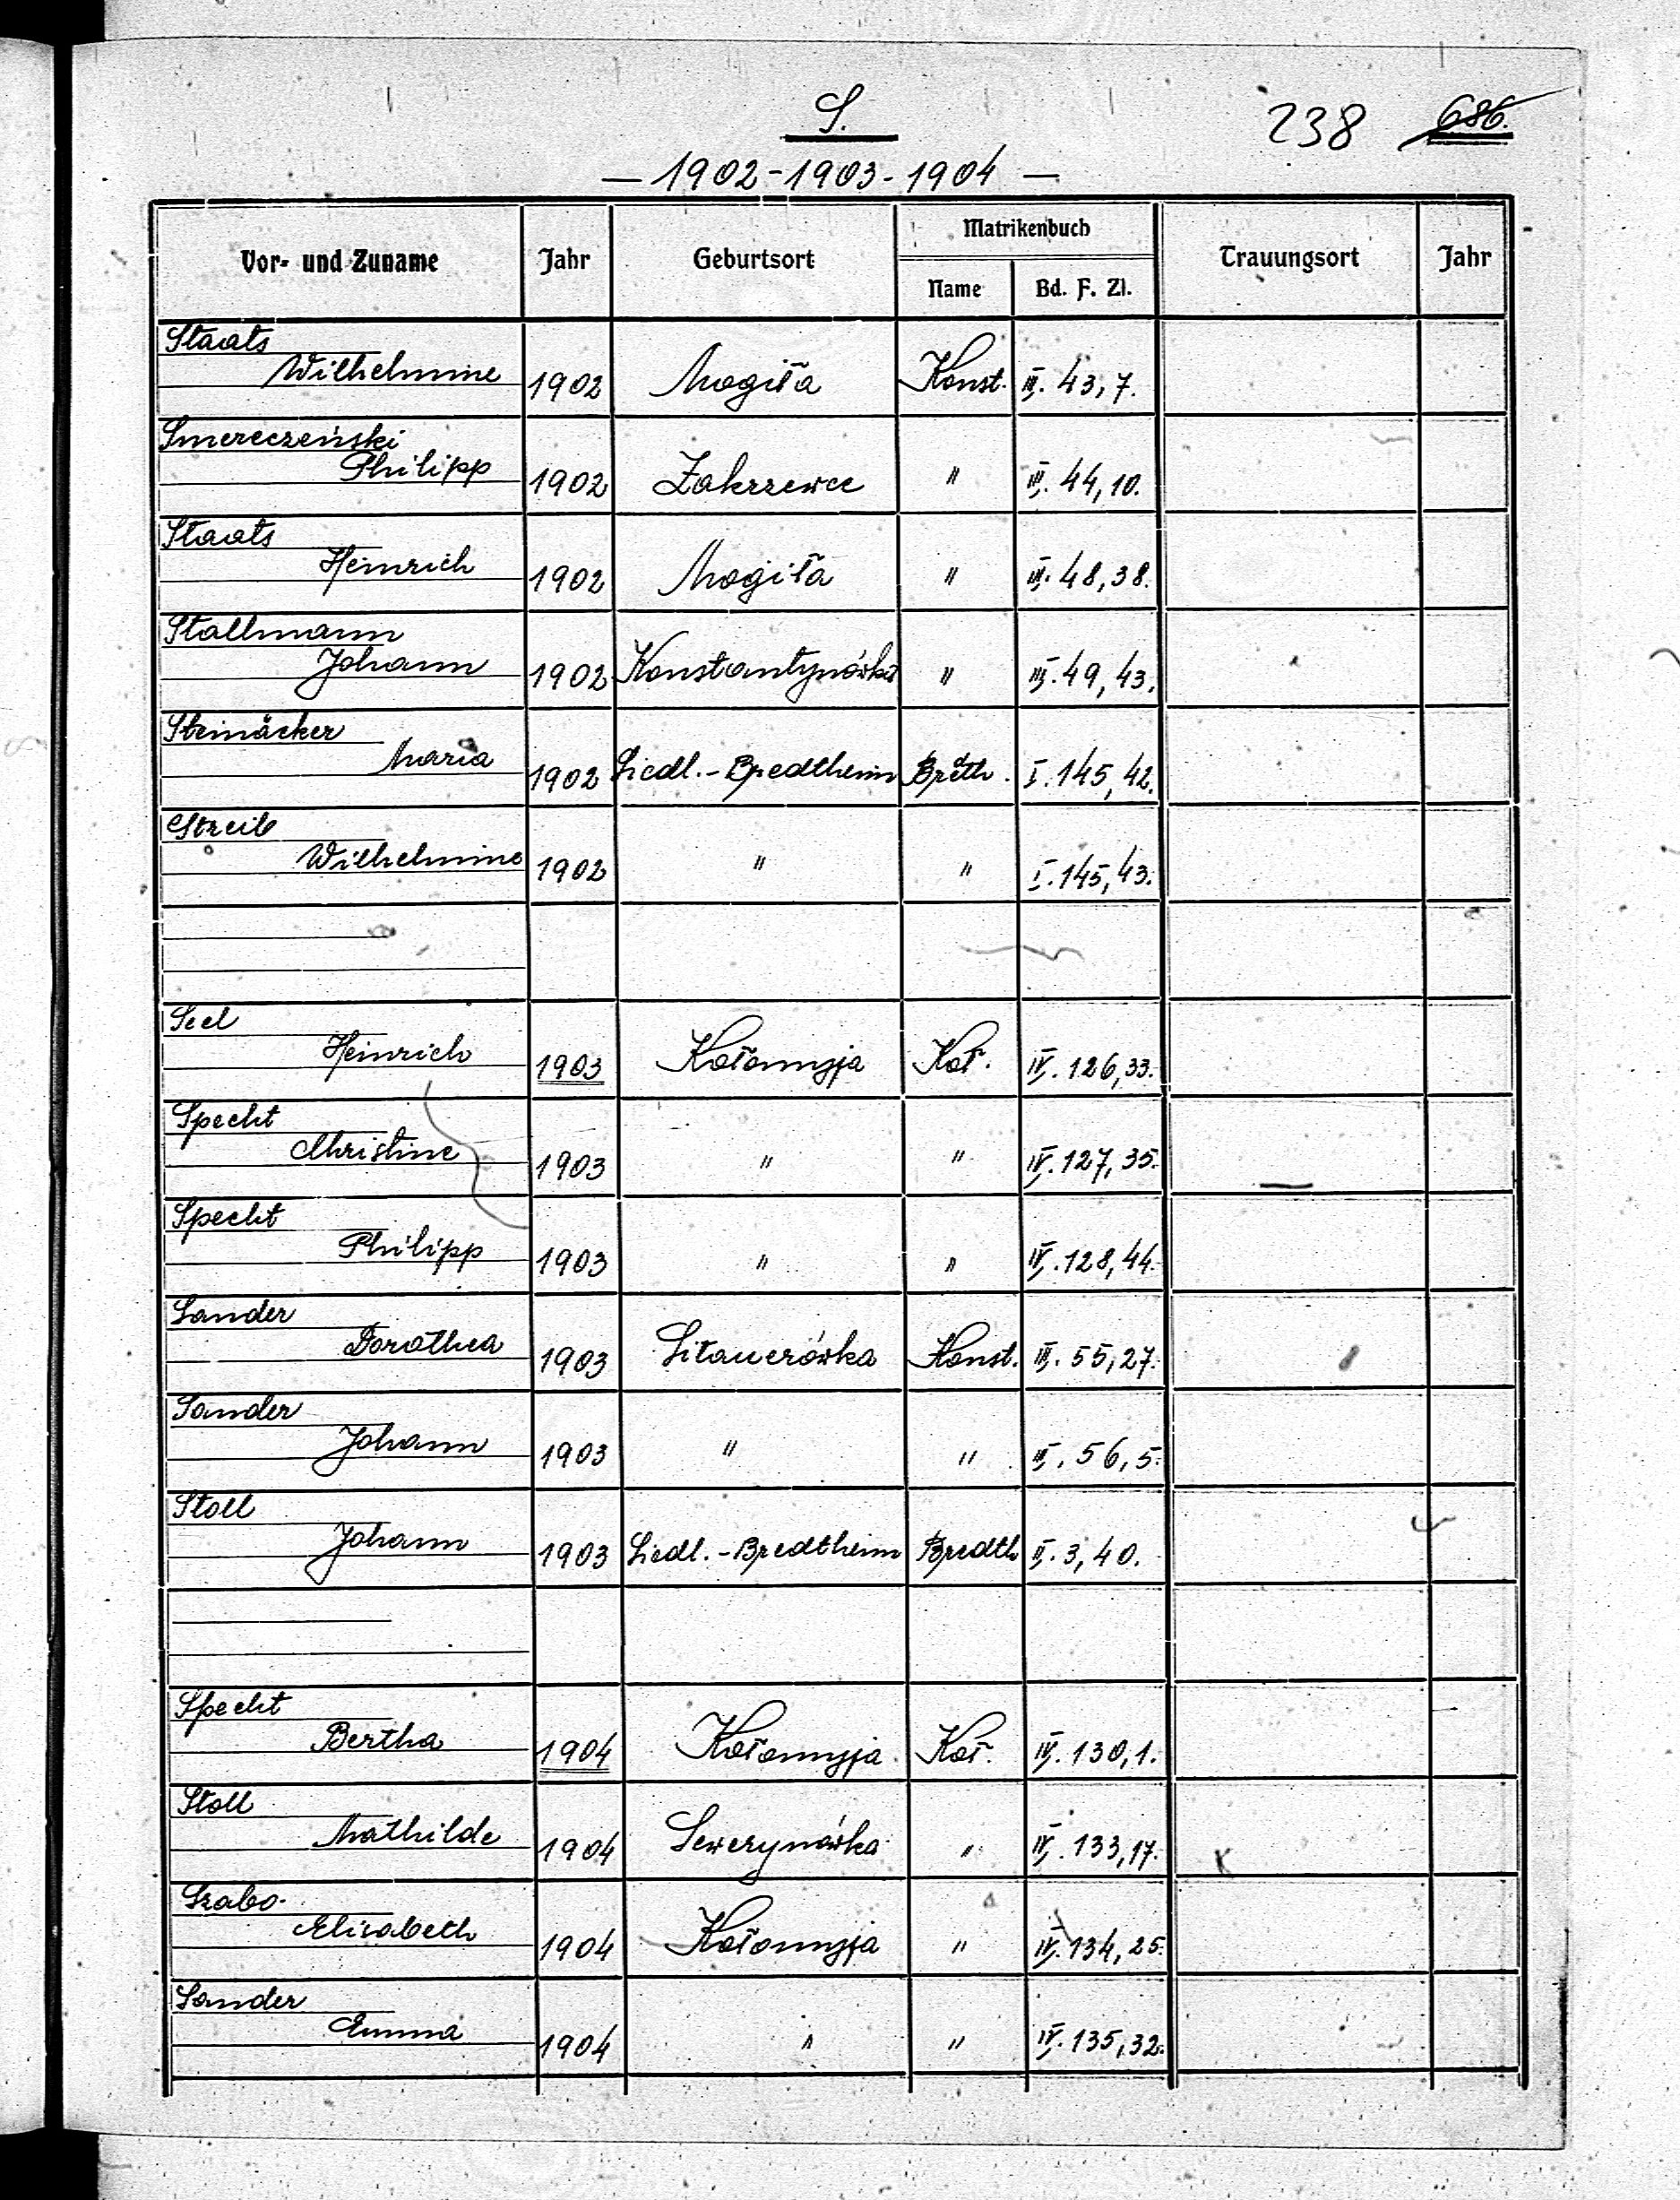 S.
238 686.
— 1902-1903-1904 —
Vor- und Zuname Jahr Geburtsort Matrikenbuch Trauungsort Jahr
Name Bd. F. Zl.
Staats
Wilhelmine 1902 Mogiła Konst. III. 43, 7.
Smereczeński
Philipp 1902 Zakrzewce " III. 44, 10.
Staats
Heinrich 1902 Mogiła " III. 48, 38.
Stallmann
Johann 1902 Konstantynówka " III. 49, 43.
Steinäcker
Maria 1902 Siedl.-Bredtheim Bredth. I. 145, 42.
Streib
Wilhelmine 1902 " " I. 145, 43.
Seel
Heinrich 1903 Kołomyja Koł. IV. 126, 33.
Specht
Christine 1903 " " IV. 127, 35.
Specht
Philipp 1903 " " IV. 128, 44.
Sander
Dorothea 1903 Sitauerówka Konst. III. 55, 27.
Sander
Johann 1903 " " III. 56, 5.
Stoll
Johann 1903 Siedl.-Bredtheim Bredth II. 3, 40.
Specht
Bertha 1904 Kołomyja Koł. IV. 130, 1.
Stoll
Mathilde 1904 Sewerynówka " IV. 133, 17.
Szabo.
Elisabeth 1904 Kołomyja " IV. 134, 25.
Sander
Emma 1904 " " IV. 135, 32.